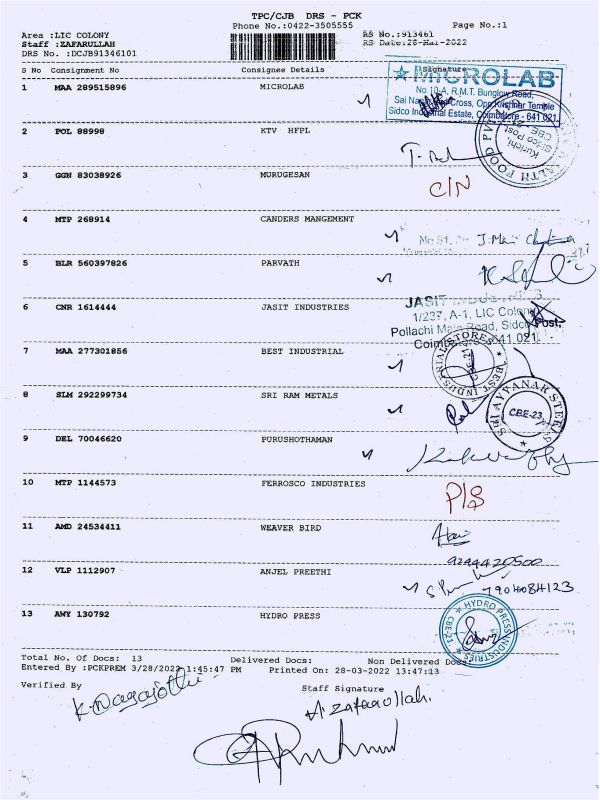 TPC/CJB DRS - PCK
Phone No.:0422-3505555
Page No.:1
Area :LIC COLONY
RS No.:913461
Staff :ZAFARULLAH
RS Date:28-Mar-2022
DRS No. :DCJB91346101
S No Consignment No Consignee Details Signature
1 MAA 289515896 MICROLAB
MICROLAB
No.10-A, R.M.T. Bunglow Road,
Sai Cross, Opp. Temple
Sidco Industrial Estate, Coimbatore - 641 021.
HEALTH FOOD
Kurichi,
Sidco Post
CBE
2 POL 88998 KTV HFPL
3 GGN 83038926 MURUGESAN
C/N
4 MTP 268914 CANDERS MANGEMENT
No 51,
5 BLR 560397826 PARVATH
6 CNR 1614444 JASIT INDUSTRIES
JASIT INDUSTRIES
1/237, A-1, LIC Colony
Pollachi Main Road, Sidco Post,
Coimbatore 641 021.
7 MAA 277301856 BEST INDUSTRIAL
BEST INDUSTRIAL STORES
CBE-21
8 SLM 292299734 SRI RAM METALS
SRI AYYANAR STEELS
CBE-23
9 DEL 70046620 PURUSHOTHAMAN
10 MTP 1144573 FERROSCO INDUSTRIES
P/S
11 AMD 24534411 WEAVER BIRD
9244420500
12 VLP 1112907 ANJEL PREETHI
7904084123
13 AWY 130792 HYDRO PRESS
HYDRO PRESS INDUSTRIES
CBE-21
Total No. Of Docs: 13 Delivered Docs: Non Delivered Docs:
Entered By :PCKPREM 3/28/2022 1:45:47 PM Printed On: 28-03-2022 13:47:13
Verified By Staff Signature
K. Nagajothi
A. Zafarullah.